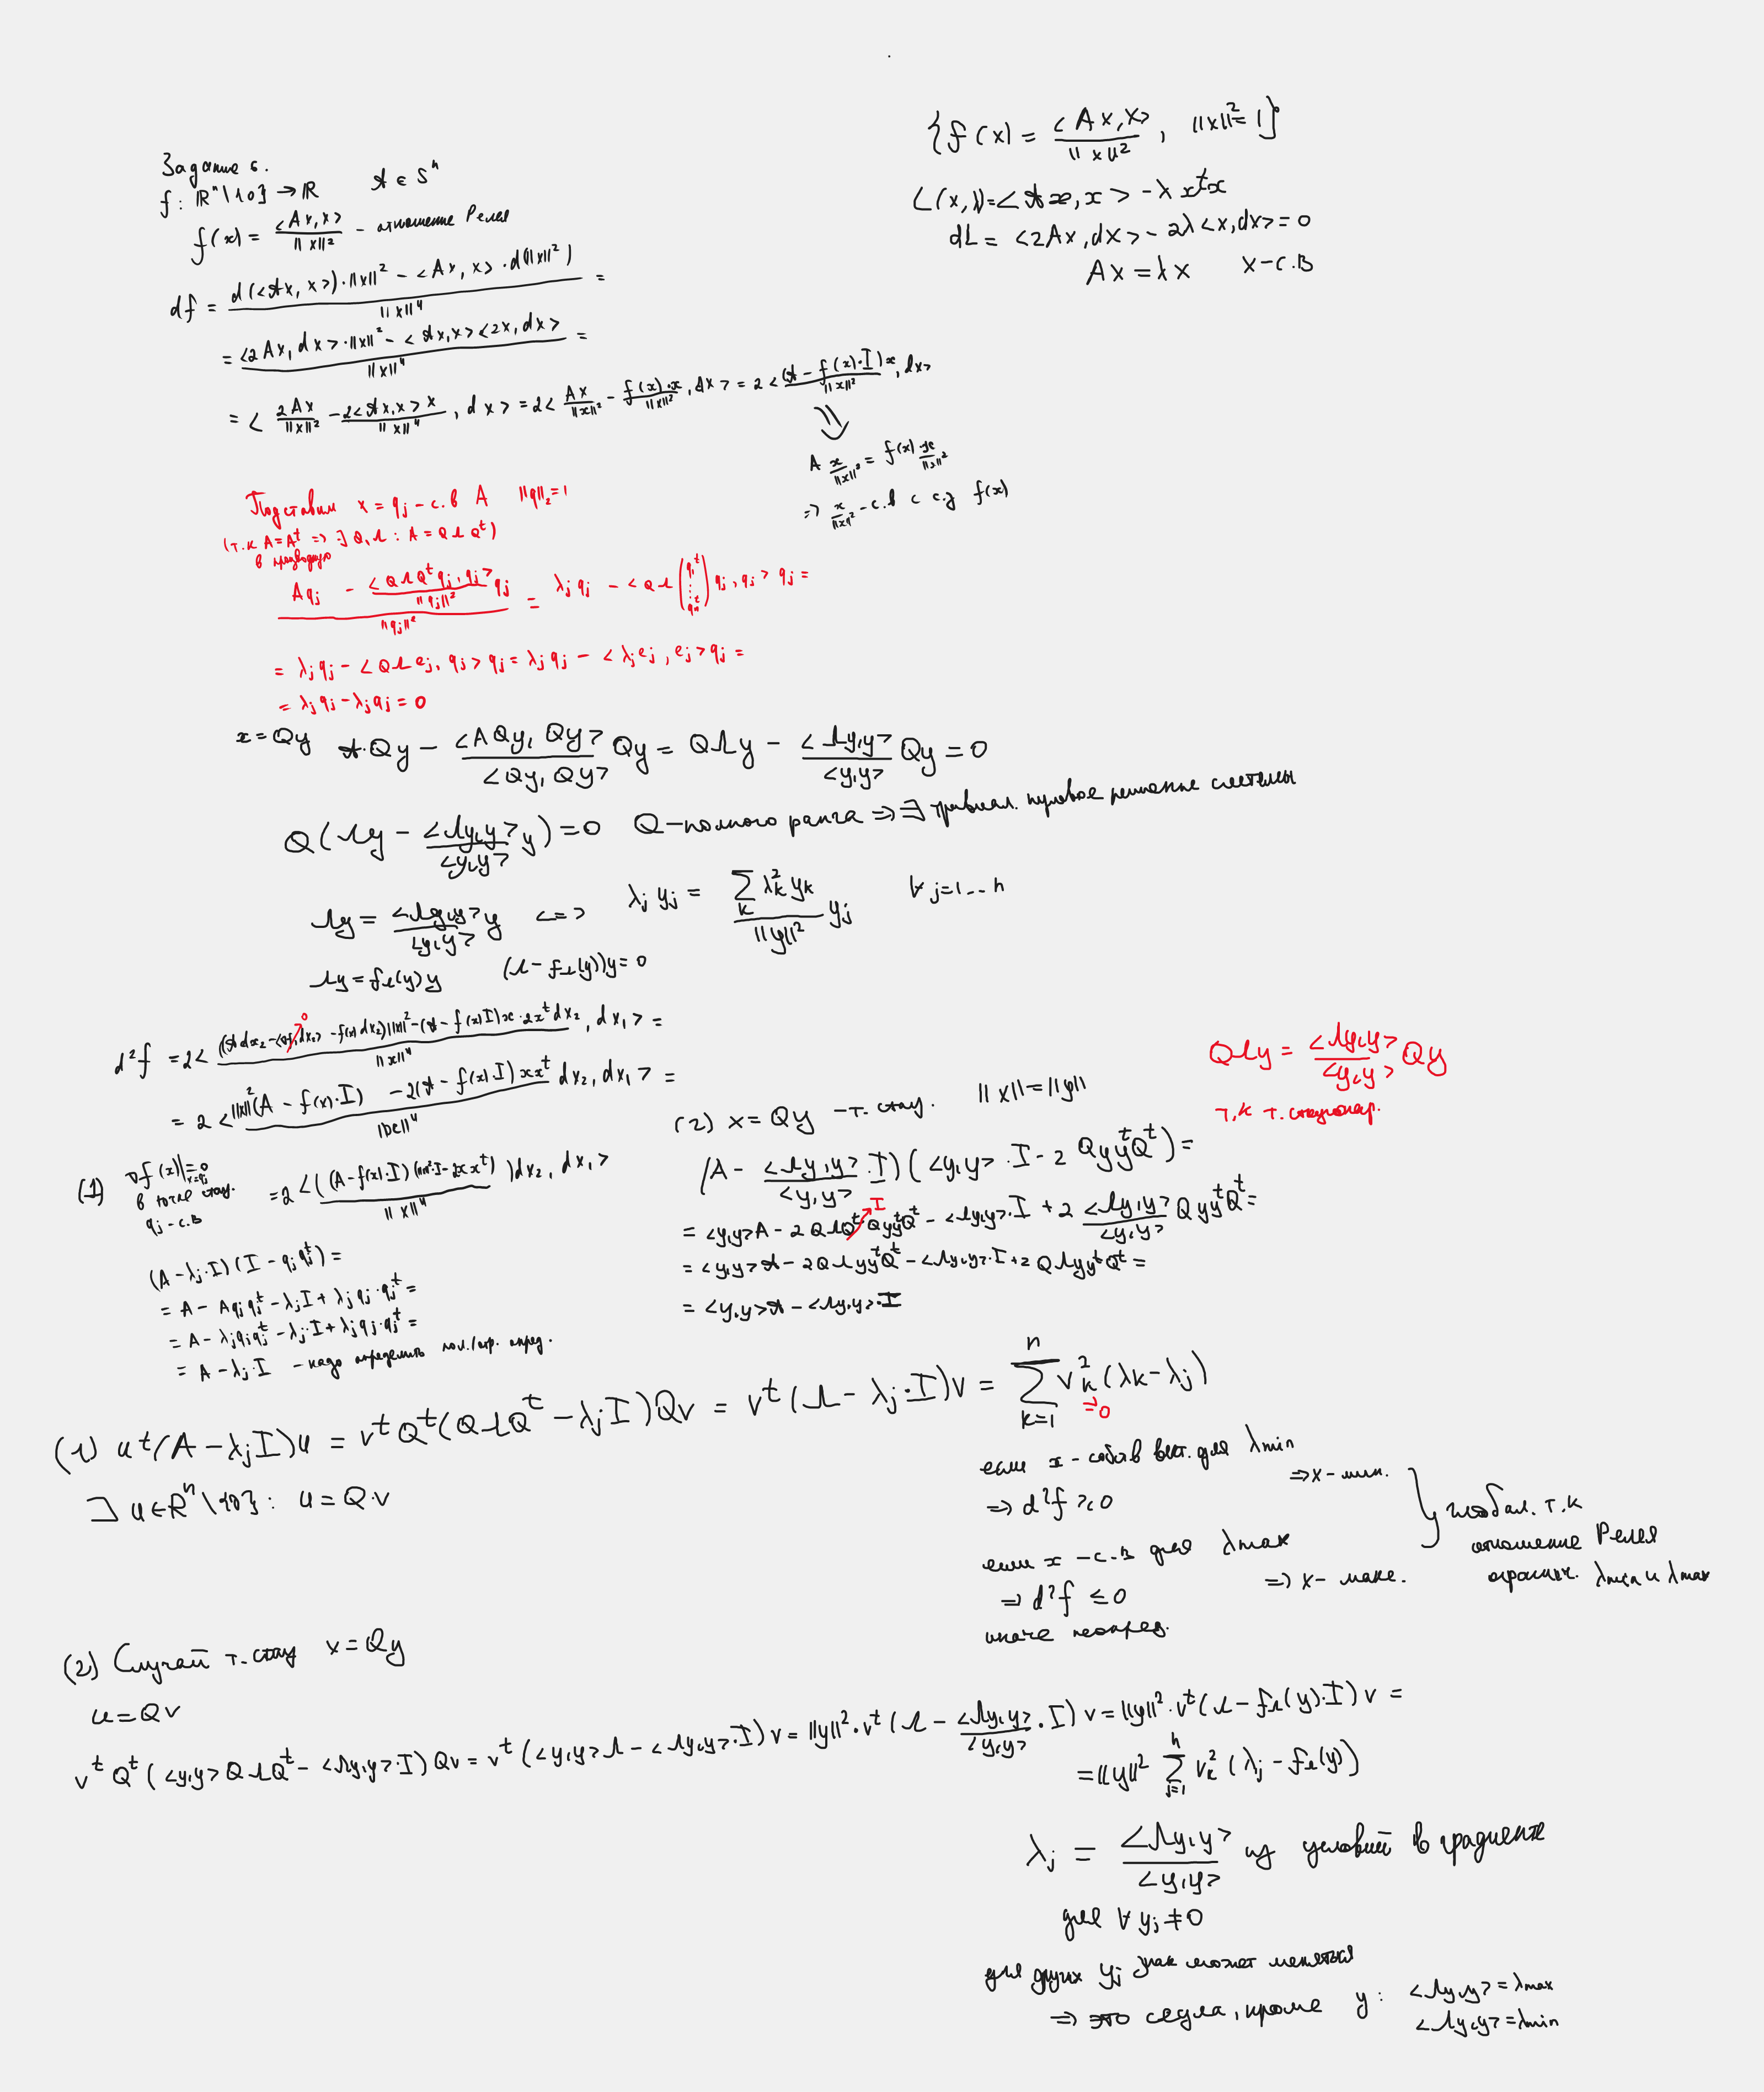 Задание 6.
f : ℝⁿ\{0} → ℝ   A ∈ Sⁿ
f(x) = <Ax, x> / ||x||² - отношение Релея
df = (d(<Ax, x>)·||x||² - <Ax, x>·d(||x||²)) / ||x||⁴ =
= (<2Ax, dx>·||x||² - <Ax, x><2x, dx>) / ||x||⁴ =
= < 2Ax / ||x||² - 2<Ax, x>x / ||x||⁴, dx > = 2< Ax / ||x||² - f(x)·x / ||x||², dx > = 2< (A - f(x)·I)x / ||x||², dx>
⇓
A x / ||x||² = f(x) x / ||x||²
=> x / ||x||² - с.в с с.з f(x)
{f(x) = <Ax, x> / ||x||², ||x||² = 1}
L(x, λ) = <Ax, x> - λ xᵗx
dL = <2Ax, dx> - 2λ<x, dx> = 0
Ax = λx   x - с.в
Подставим x = qj - с.в A   ||q||₂ = 1
(т.к A = Aᵗ => ∃ Q, Λ : A = QΛQᵗ)
в производную
(Aqj - <QΛQᵗqj, qj> / ||qj||² qj) / ||qj||² = λj qj - <QΛ (q₁ᵗ ⋮ qₙᵗ) qj, qj> qj =
= λj qj - <QΛej, qj> qj = λj qj - <λj ej, ej> qj =
= λj qj - λj qj = 0
x = Qy   A·Qy - <AQy, Qy> / <Qy, Qy> Qy = QΛy - <Λy, y> / <y, y> Qy = 0
Q(Λy - <Λy, y> / <y, y> y) = 0   Q - полного ранга => ∃ тривиал. нулевое решение системы
Λy = <Λy, y> / <y, y> y <=> λj yj = Σₖ λₖ² yₖ / ||y||² yj   ∀ j = 1 .. n
Λy = f_Λ(y) y   (Λ - f_Λ(y))y = 0
d²f = 2< ((A dx₂ - <∇f, dx₂> - f(x) dx₂)||x||² - (A - f(x)I)x·2xᵗdx₂) / ||x||⁴, dx₁ > =
0
= 2< (||x||²(A - f(x)·I) - 2(A - f(x)·I)xxᵗ) / ||x||⁴ dx₂, dx₁ > =
(1) ∇f(x)|x=qj = 0
в точке стац.
qj - с.в
= 2<( (A - f(x)·I)(||x||²·I - 2xxᵗ) / ||x||⁴ )dx₂, dx₁>
(A - λj·I)(I - qj qjᵗ) =
= A - Aqj qjᵗ - λj I + λj qj·qjᵗ =
= A - λj qj qjᵗ - λj·I + λj qj·qjᵗ =
= A - λj·I - надо определить пол./отр. опред.
(2) x = Qy - т. стац.   ||x|| = ||y||
QΛy = <Λy, y> / <y, y> Qy
т.к т. стационар.
(A - <Λy, y> / <y, y>·I)(<y, y>·I - 2Qyyᵗ Qᵗ) =
= <y, y>A - 2QΛQᵗ·QyyᵗQᵗ - <Λy, y>·I + 2 <Λy, y> / <y, y> QyyᵗQᵗ =
I
= <y, y>A - 2QΛyyᵗQᵗ - <Λy, y>·I + 2QΛyyᵗQᵗ =
= <y, y>A - <Λy, y>·I
(1) uᵗ(A - λj I)u = vᵗQᵗ(QΛQᵗ - λj I)Qv = vᵗ(Λ - λj·I)v = Σₖ₌₁ⁿ vₖ²(λk - λj)
≥0
∃ u ∈ ℝⁿ\{0} : u = Q·v
если x - собств вект. для λmin
=> d²f ≥ 0   => x - мин.
если x - с.в для λmax
=> d²f ≤ 0   => x - макс.
иначе неопред.
глобал. т.к
отношение Релея
огранич. λmin и λmax
(2) Случай т. стац x = Qy
u = Qv
vᵗQᵗ(<y, y>QΛQᵗ - <Λy, y>·I)Qv = vᵗ(<y, y>Λ - <Λy, y>·I)v = ||y||²·vᵗ(Λ - <Λy, y> / <y, y>·I)v = ||y||²·vᵗ(Λ - f_Λ(y)·I)v =
= ||y||² Σⱼ₌₁ⁿ vₖ²(λj - f_Λ(y))
λj = <Λy, y> / <y, y> из условий в градиенте
для ∀ yj ≠ 0
для других yj знак может меняться
=> это седла, кроме y : <Λy, y> = λmax
<Λy, y> = λmin